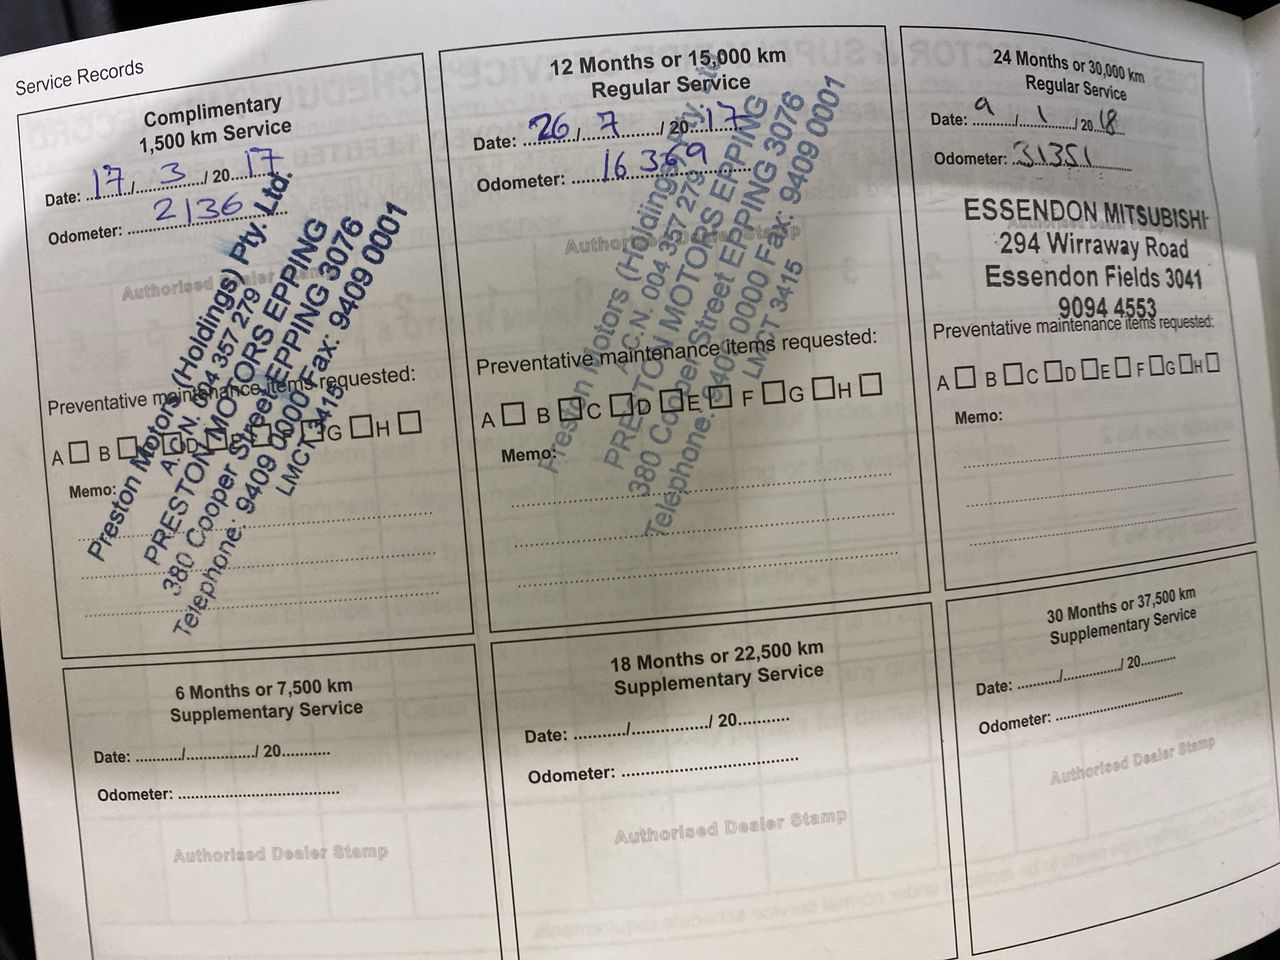 Service Records
Complimentary
1,500 km Service
Date: 17/3/2017
Odometer: 2136
Authorised Dealer Stamp
Preston Motors (Holdings) Pty. Ltd.
A.C.N. 004 357 279
PRESTON MOTORS EPPING
380 Cooper Street EPPING 3076
Telephone: 9409 0000 Fax: 9409 0001
LMCT 3415
Preventative maintenance items requested:
A B C D E F G H
Memo:
12 Months or 15,000 km
Regular Service
Date: 26/7/2017
Odometer: 16369
Authorised Dealer Stamp
Preston Motors (Holdings) Pty. Ltd.
A.C.N. 004 357 279
PRESTON MOTORS EPPING
380 Cooper Street EPPING 3076
Telephone: 9409 0000 Fax: 9409 0001
LMCT 3415
Preventative maintenance items requested:
A B C D E F G H
Memo:
24 Months or 30,000 km
Regular Service
Date: 9/1/2018
Odometer: 31351
ESSENDON MITSUBISHI
294 Wirraway Road
Essendon Fields 3041
9094 4553
Preventative maintenance items requested:
A B C D E F G H
Memo:
6 Months or 7,500 km
Supplementary Service
Date: ........../............../ 20...........
Odometer: .....................................
Authorised Dealer Stamp
18 Months or 22,500 km
Supplementary Service
Date: ........../............../ 20...........
Odometer: .....................................
Authorised Dealer Stamp
30 Months or 37,500 km
Supplementary Service
Date: ........../............../ 20...........
Odometer: .....................................
Authorised Dealer Stamp